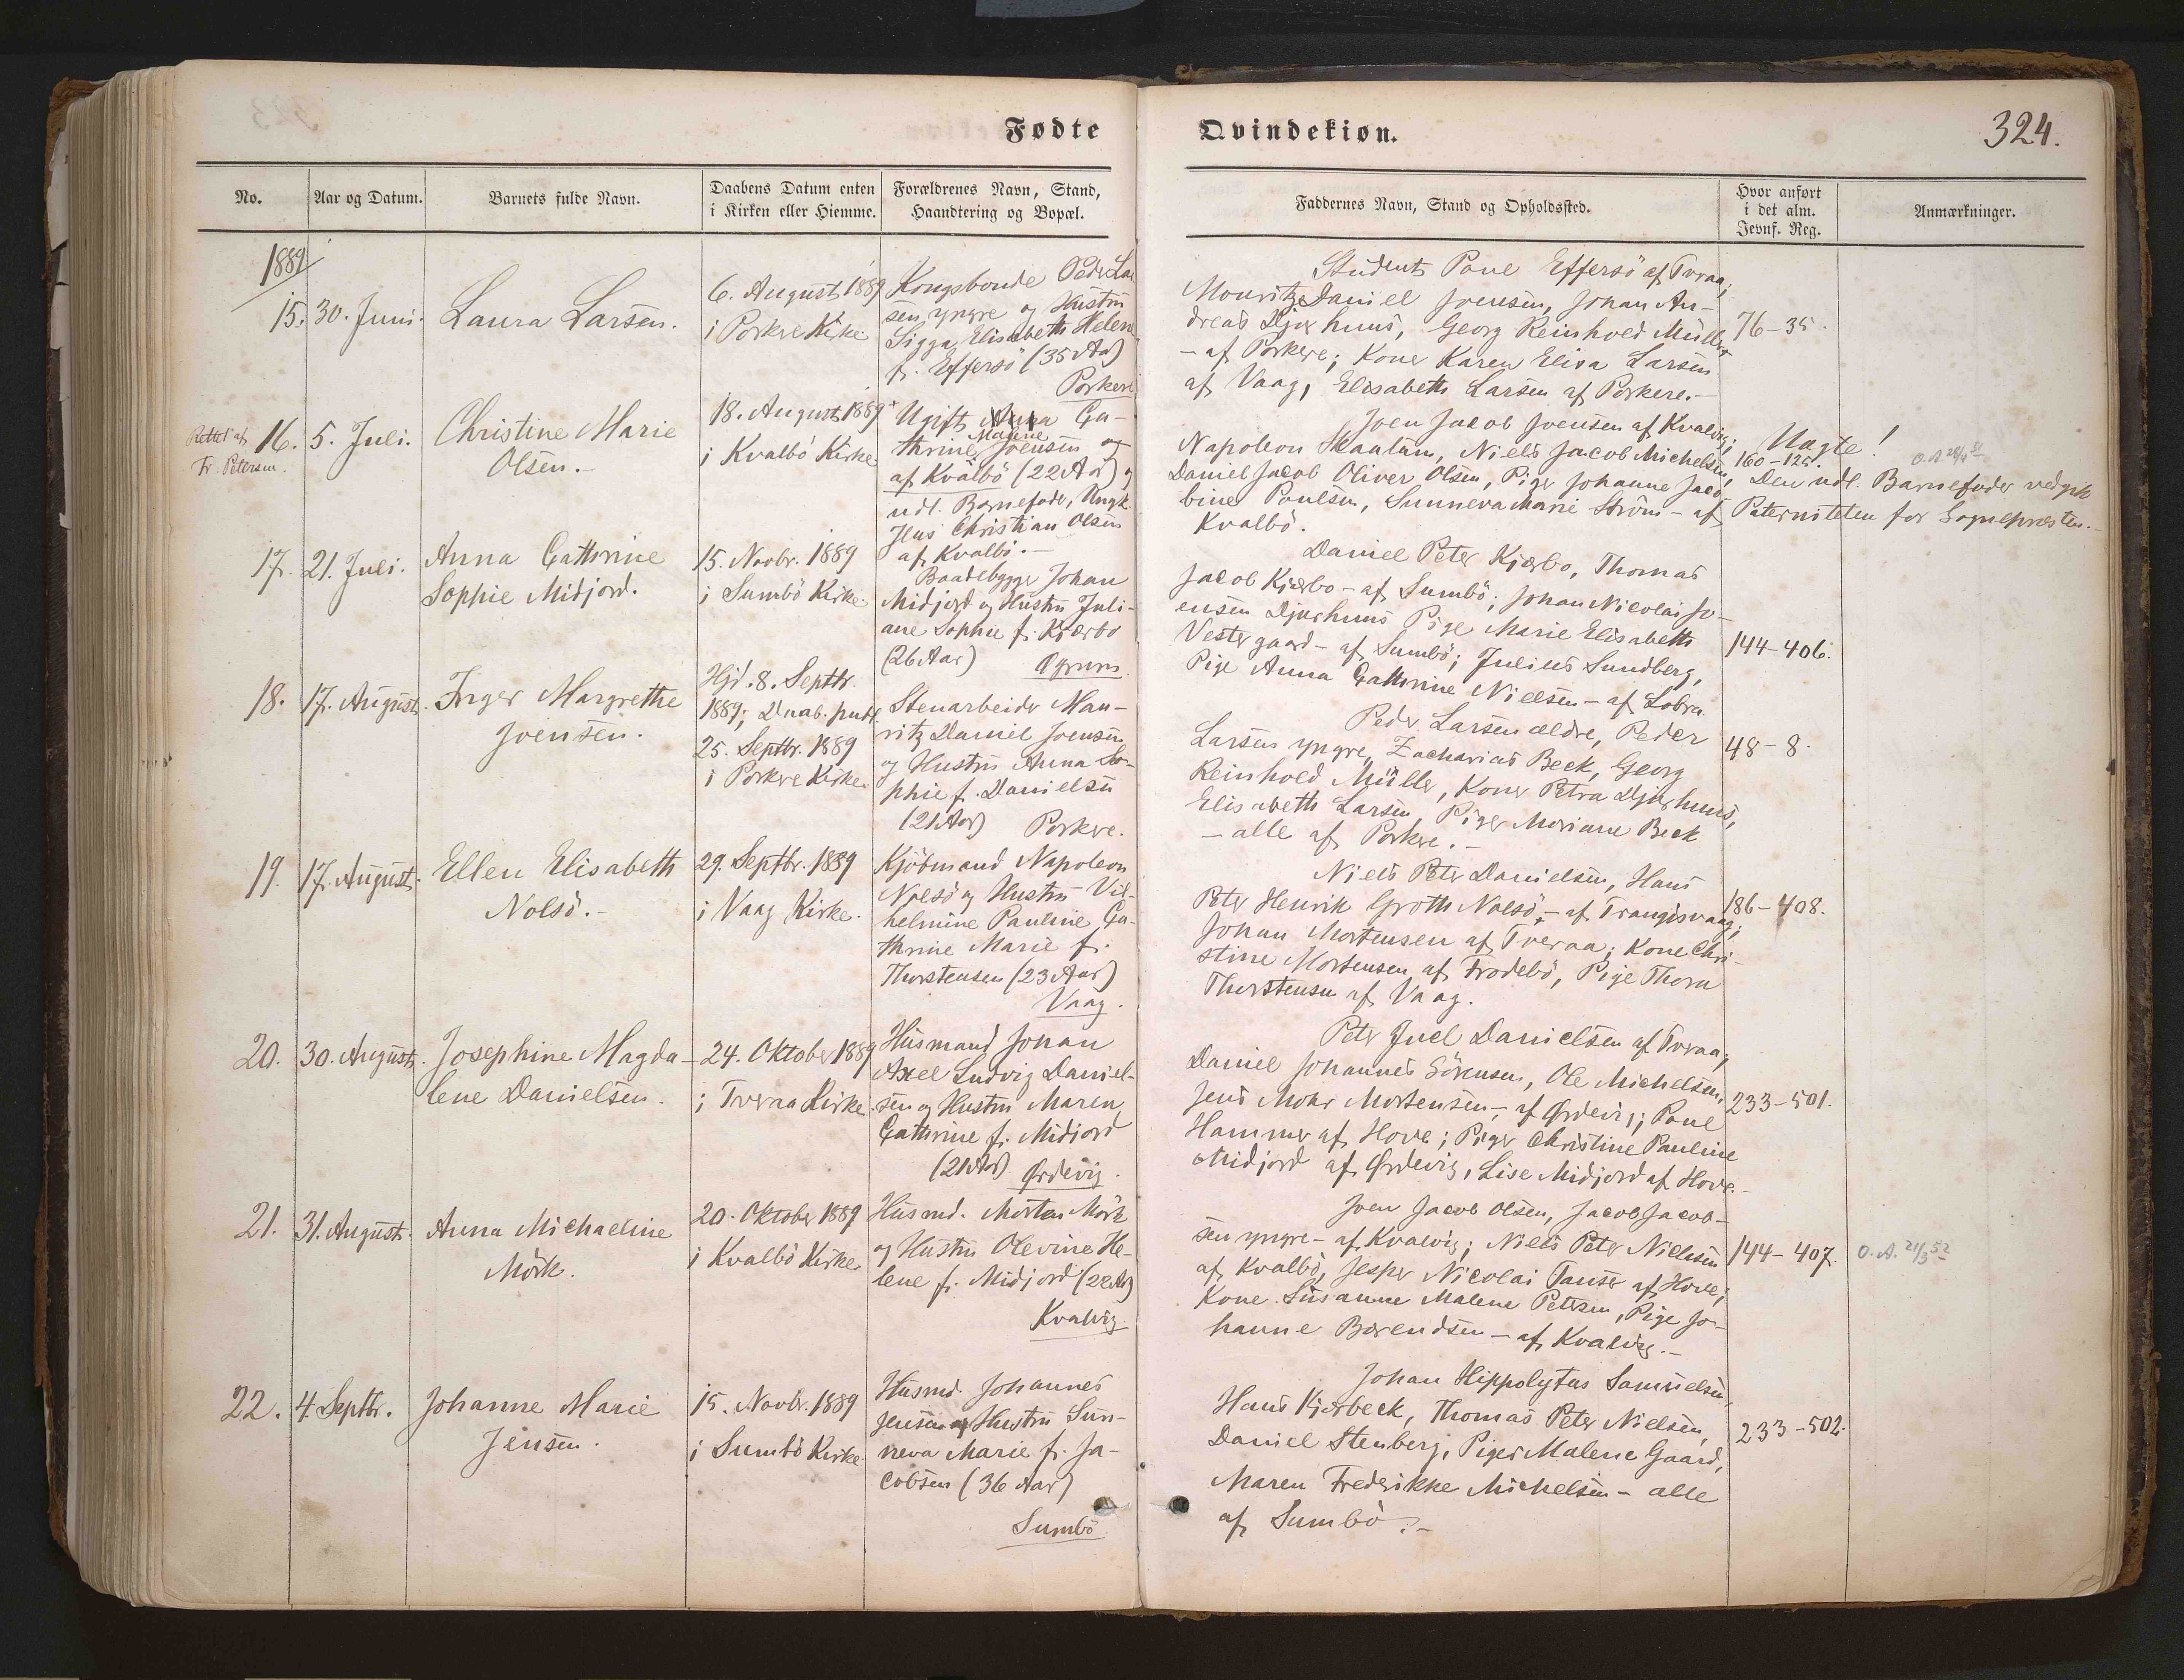 Fødte
Qvindekiøn.
324.
No.
Aar og Datum.
Barnets fulde Navn.
Daabens Datum enten
i Kirken eller Hiemme.
Forældrenes Navn, Stand,
Haandtering og Bopæl.
Faddernes Navn, Stand og Opholdssted.
Hvor anført
i det alm.
Jevnf. Reg.
Anmærkninger.
1889
15.
30. Juni.
Laura Larsen.
6. August 1889
i Porkere Kirke
Kongsbonde Peder Lar
sen yngre og Hustru
Sigga Elisabeth Helene
f. Effersö (35 Aar)
Porkere
Student Poul Effersö af Tveraa;
Mouritz Daniel Joensen, Johan An-
dreas Djurhuus, Georg Reinhold Müller
- af Porkere; Koner Karen Elisa Larsen
af Vaag, Elisabeth Larsen af Porkere.-
76-35.
Rettet af
Fr. Petersen.
16.
5. Juli.
Christine Marie
Olsen.-
18. August 1889
i Kvalbö Kirke
Ugift Anna Ca-
Malene
thrine Joensen og
af Kvalbö (22 Aar) og
udl. Barnefader, Ungk.
Jens Christian Olsen
af Kvalbö.-
Joen Jacob Joensen af Kvalvig;
Napoleon Skaalum, Niels Jacob Michelsen,
Daniel Jacob Oliver Olsen, Piger Johanne Jaco
bine Poulsen, Sunneva Marie Ström - af
Kvalbö.
160-125.
Uægte!
Den udl. Barnefader vedgik
Paterniteten for Sognepræsten.-
17.
21. Juli.
Anna Cathrine
Sophie Midjord.
15. Novbr. 1889
i Sumbö Kirke
Baadebygger Johan
Midjord og Hustru Juli-
ane Sophie f. Kjærbo
(26 Aar)
Daniel Peter Kjærbo, Thomas
Jacob Kjærbo - af Sumbö; Johan Nicolai Jo-
ensen Djurhuus Pige Marie Elisabeth
Vestergaard - af Sumbö; Julius Sundberg,
Pige Anna Cathrine Nielsen - af Lobra
144-406.
18.
17. August.
Inger Margrethe
Joensen.
Hjd. 8. Septbr.
1889; Daab. publ.
25. Septbr. 1889
i Porkere Kirke.
Stenarbeider Mau-
ritz Daniel Joensen
og Hustru Anna So-
phie f. Danielsen
(21 Aar) Porkere.
Peder Larsen ældre, Peder
Larsen yngre, Zacharias Beck, Georg
Reinhold Müller, Koner Petra Djurhuus,
Elisabeth Larsen, Piger Mariane Beck
- alle af Porkere.-
48-8.
19.
17. August.
Ellen Elisabeth
Nolsö.-
29. Septbr. 1889
i Vaag Kirke.
Kjöbmand Napoleon
Nolsö og Hustru Vil-
helmine Pauline Ca-
thrine Marie f.
Thorstensen (23 Aar)
Vaag.
Niels Peter Danielsen, Hans
Peter Henrik Groth Nolsö, - af Trangisvaag;
Johan Mortensen af Tveraa; Kone Chri-
stine Mortensen af Frodebö, Pige Thora
Thorstensen af Vaag.
186-408.
20.
30. August.
Josephine Magda-
lene Danielsen.
24. Oktober 1889
i Tveraa Kirke.
Husmand Johan
Axel Ludvig Daniel-
sen og Hustru Maren
Cathrine f. Midjord
(21 Aar) Ørdevig.
Peter Juel Danielsen af Tveraa;
Daniel Johannes Sörensen, Ole Michelsen,
Jens Mohr Mortensen, - af Ørdevig; Poul
Hammer af Hove; Piger Christine Pauline
Midjord af Ørdevig, Lise Midjord af Hove.-
233-501.
21.
31. August.
Anna Michaeline
Mörk.
20. Oktober 1889
i Kvalbö Kirke
Husmd. Morten Mörk
og Hustru Olevine He-
lene f. Midjord (22 Aar)
Kvalvig
Joen Jacob Olsen, Jacob Jacob-
sen yngre - af Kvalvig; Niels Peter Nielsen
af Kvalbö, Jesper Nicolai Tausen af Hove;
Kone Susanne Malene Petersen, Pige Jo-
hanne Barendsen - af Kvalvig.-
144-407.
O.A. 21/3 52
22.
4. Septbr.
Johanne Marie
Jensen.
15. Novbr. 1889
i Sumbö Kirke
Husmd. Johannes
Jensen og Hustru Sun-
neva Marie f. Ja-
cobsen (36 Aar)
Sumbö
Johan Hippolytus Samuelsen,
Hans Kjærbeck, Thomas Peter Nielsen,
Daniel Stenberg, Piger Malene Gaard,
Maren Frederikke Michelsen - alle
af Sumbö.-
233-502.